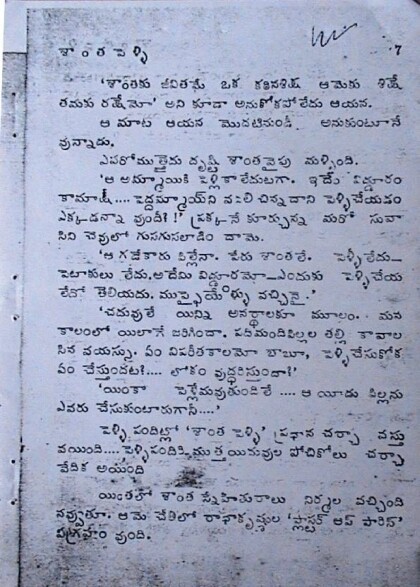 7
శాంత పెళ్ళి
'శాంతకు జీవితమే ఒక కఠినశిక్ష ఆమెకు శిక్షే
తమకు రక్షేమో' అని కూడా అనుకోకపోలేదు ఆయన.
ఆ మాట ఆయన మొదటినుండీ అనుకుంటూనే
వున్నాడు.
ఎవరోముత్తైదు దృష్టి శాంతవైపు మళ్ళింది.
'ఆ అమ్మాయికి పెళ్లికాలేదుటగా. ఇదేమి విడ్డూరం
కామాక్షీ.... పెద్దమ్మాయ్‌ని వదిలి చిన్నదాని పెళ్ళిచేయడం
ఎక్కడన్నా వుందీ?!' ప్రక్కనే కూర్చున్న మరో సువా
సిని చెవులో గుసగుసలాడిం దామె.
'ఆ గజేకారు పిల్లేనా. పేరు శాంతలే. పెళ్ళీలేదు—
పెటాకులు లేదు. అదేమి విడ్డూరమో—ఎందుకు పెళ్ళిచేయ
లేదో తెలియదు. ముప్ఫైయేళ్ళు వచ్చినై.'
'చదువులే యిన్ని అనర్థాలకూ మూలం. మన
కాలంలో యిలాగే జరిగిందా. పదిమందిపిల్లల తల్లి కావాల
సిన వయస్సు. ఏం విపరీతకాలమో బాబూ, పెళ్ళిచేసుకోక
ఏం చేస్తుందట?.... లోకం వుద్ధరిస్తుందా?'
'యింకా పెళ్లేమవుతుందిలే .... ఆ యీడు పిల్లను
ఎవరు చేసుకుంటారుగానీ....'
పెళ్ళి పందిట్లో 'శాంత పెళ్ళి' ప్రధాన చర్చా వస్తు
వయింది.... పెళ్ళిపందిరి ముత్తయిదువుల పోచికోలు చర్చా
వేదిక అయింది
యింతలో శాంత స్నేహితురాలు నిర్మల వచ్చింది
నవ్వుతూ. ఆమె చేతిలో రాధాకృష్ణుల 'ప్లాస్టర్ ఆఫ్ పారిస్'
విగ్రహం వుంది.